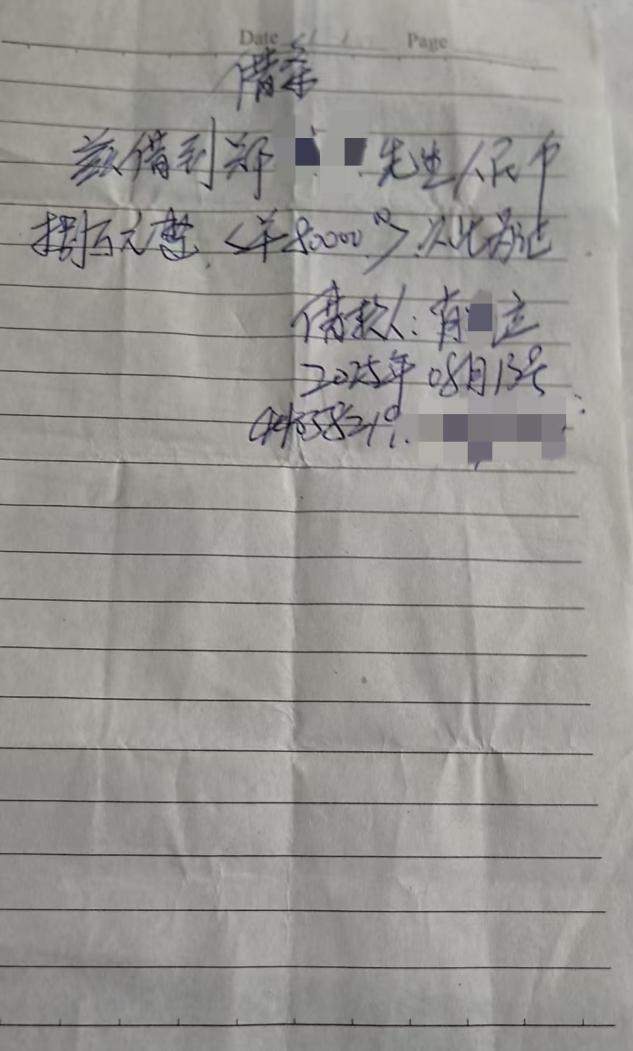 Date / / Page
借条
兹借到郑 先生人民币
捌万元整.<羊80000.00>.以此为证
借款人: 肖 立
2025年08月13号